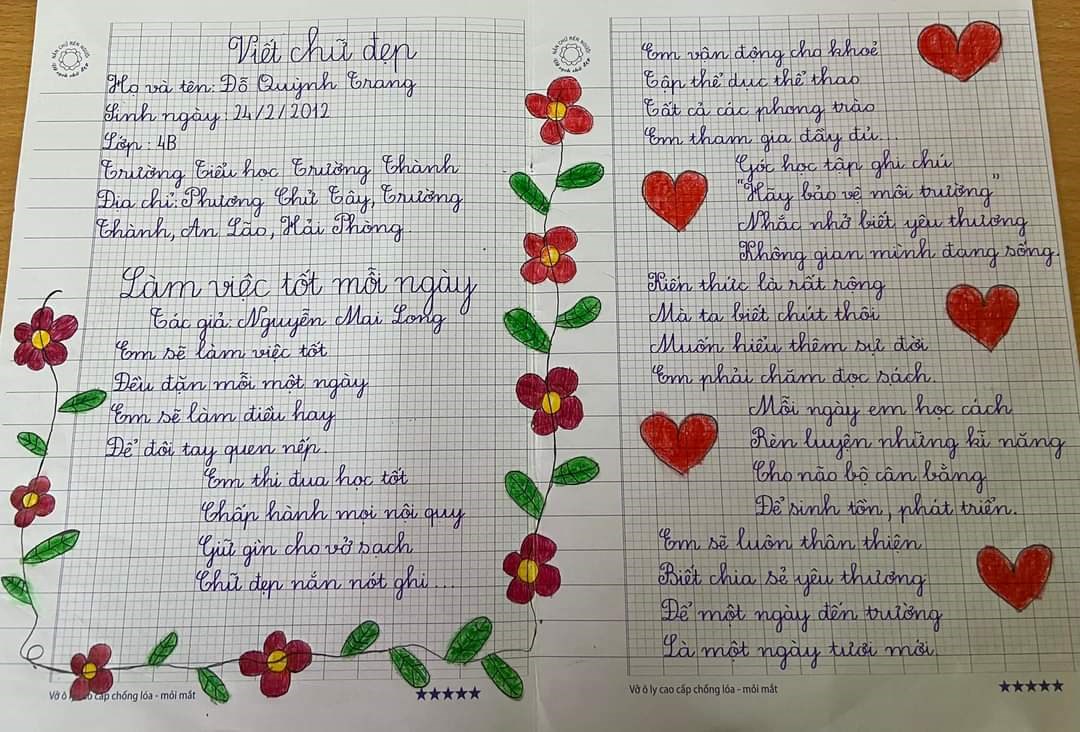 Viết chữ đẹp
Họ và tên: Đỗ Quỳnh Trang
Sinh ngày: 24/2/2012
Lớp: 4B
Trường Tiểu học Trường Thành
Địa chỉ: Phương Chử Tây, Trường
Thành, An Lão, Hải Phòng.
Làm việc tốt mỗi ngày
Tác giả: Nguyễn Mai Long
Em sẽ làm việc tốt
Đều đặn mỗi một ngày
Em sẽ làm điều hay
Để đôi tay quen nếp.
Em thi đua học tốt
Chấp hành mọi nội quy
Giữ gìn cho vở sạch
Chữ đẹp nắn nót ghi...
Vở ô ly cao cấp chống lóa - mỏi mắt
Em vận động cho khoẻ
Tập thể dục thể thao
Tất cả các phong trào
Em tham gia đầy đủ...
Góc học tập ghi chú
"Hãy bảo vệ môi trường"
Nhắc nhở biết yêu thương
Không gian mình đang sống.
Kiến thức là rất rộng
Mà ta biết chút thôi
Muốn hiểu thêm sự đời
Em phải chăm đọc sách.
Mỗi ngày em học cách
Rèn luyện những kĩ năng
Cho não bộ cân bằng
Để sinh tồn, phát triển.
Em sẽ luôn thân thiện
Biết chia sẻ yêu thương
Để một ngày đến trường
Là một ngày tươi mới.
Vở ô ly cao cấp chống lóa - mỏi mắt